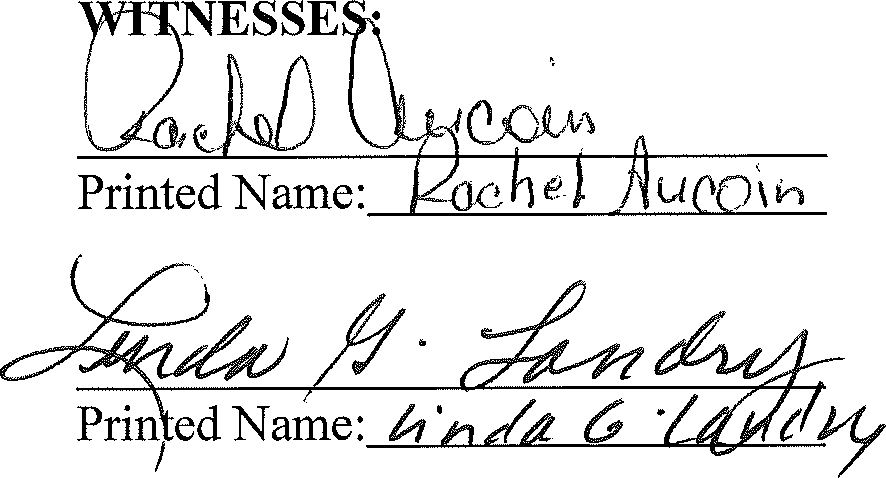 WITNESSES:
Rachel Aucoin
Printed Name: Rachel Aucoin
Linda G. Landry
Printed Name: Linda G. Landry